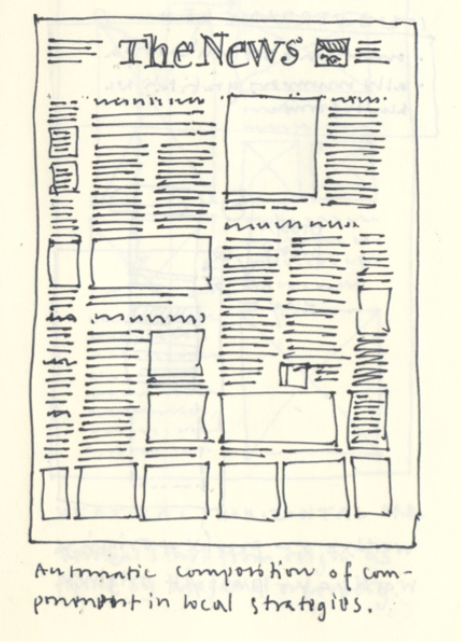 The News
Automantic composition of com-
ponendent in local strategies.